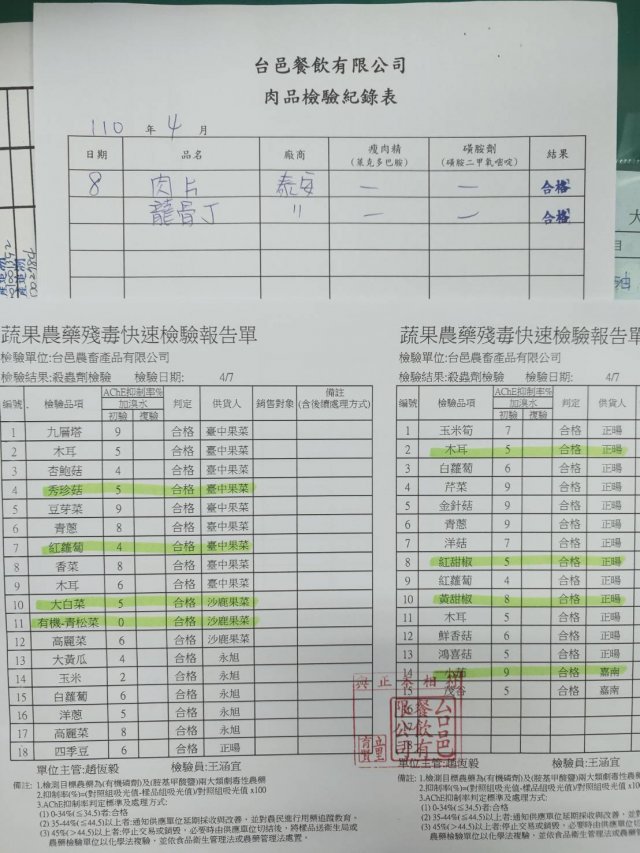 台邑餐飲有限公司
肉品檢驗紀錄表
110 年 4 月
日期 品名 廠商 瘦肉精 (萊克多巴胺) 磺胺劑 (磺胺二甲氧嘧啶) 結果
8 肉片 泰安 — — 合格
龍骨丁 〃 — — 合格
蔬果農藥殘毒快速檢驗報告單
檢驗單位:台邑農畜產品有限公司
檢驗結果:殺蟲劑檢驗 檢驗日期: 4/7
編號 檢驗品項 AChE抑制率% 加溴水 初驗 複驗 判定 供貨人 銷售對象 備註 (含後續處理方式)
1 九層塔 9 合格 臺中果菜
2 木耳 5 合格 臺中果菜
3 杏鮑菇 4 合格 臺中果菜
4 秀珍菇 5 合格 臺中果菜
5 豆芽菜 9 合格 臺中果菜
6 青蔥 8 合格 臺中果菜
7 紅蘿蔔 4 合格 臺中果菜
8 香菜 8 合格 臺中果菜
9 木耳 6 合格 臺中果菜
10 大白菜 5 合格 沙鹿果菜
11 有機-青松菜 0 合格 沙鹿果菜
12 高麗菜 6 合格 沙鹿果菜
13 大黃瓜 4 合格 永旭
14 玉米 2 合格 永旭
15 白蘿蔔 6 合格 永旭
16 洋蔥 5 合格 永旭
17 高麗菜 8 合格 永旭
18 四季豆 6 合格 正暘
單位主管:趙恆毅 檢驗員:王涵宜
備註: 1.檢測目標農藥為(有機磷劑)及(胺基甲酸鹽)兩大類劇毒性農藥
2.抑制率(%)=(對照組吸光值-樣品組吸光值)/對照組吸光值 x100
3.AChE抑制率判定標準及處理方式:
(1) 0-34%(≦34.5)者:合格
(2) 35-44%(≦44.5)以上者:通知供應單位延期採收與改善，並對農民進行用藥追蹤教育.
(3) 45%(>44.5)以上者:停止交易或銷毀，必要時由供應單位切結後，將樣品送衛生局或
農藥檢驗單位以化學法複驗，並依食品衛生管理法或農藥管理法處置.
蔬果農藥殘毒快速檢驗報告單
檢驗單位:台邑農畜產品有限公司
檢驗結果:殺蟲劑檢驗 檢驗日期: 4/7
編號 檢驗品項 AChE抑制率% 加溴水 初驗 複驗 判定 供貨人
1 玉米筍 7 合格 正暘
2 木耳 5 合格 正暘
3 白蘿蔔 6 合格 正暘
4 芹菜 9 合格 正暘
5 金針菇 9 合格 正暘
6 青蔥 9 合格 正暘
7 洋菇 7 合格 正暘
8 紅甜椒 5 合格 正暘
9 紅蘿蔔 4 合格 正暘
10 黃甜椒 8 合格 正暘
11 木耳 5 合格 正暘
12 鮮香菇 6 合格 正暘
13 鴻喜菇 5 合格 正暘
14 小茴 9 合格 嘉南
15 茂谷 5 合格 嘉南
台邑餐飲有限公司
檢驗員:王涵宜
單位主管:趙恆毅
備註: 1.檢測目標農藥為(有機磷劑)及(胺基甲酸鹽)
2.抑制率(%)=(對照組吸光值-樣品組吸光值)/
3.AChE抑制率判定標準及處理方式:
(1) 0-34%(≦34.5)者:合格
(2) 35-44%(≦44.5)以上者:通知供應單位延期採收與改善，並對
(3) 45%(>44.5)以上者:停止交易或銷毀，必要時由供應
農藥檢驗單位以化學法複驗，並依食品衛生管理法